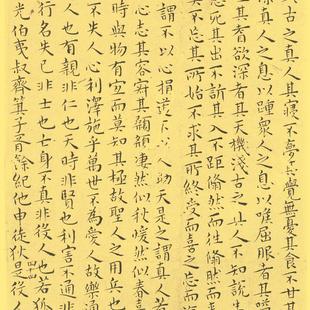 古之真人其寢不夢其覺無憂其食不甘其
深真人之息以踵眾人之息以喉屈服者其嗌
其耆欲深者其天機淺古之真人不知說生
惡死其出不訢其入不距翛然而往翛然而
不忘其所始不求其所終受而喜之忘而
謂不以心捐道不以人助天是之謂真人若
心志其容寂其顙頯凄然似秋煖然似春喜
時與物有宜而莫知其極故聖人之用兵也
不失人心利澤施乎萬世不為愛人故樂通
人也有親非仁也天時非賢也利害不通非
行名失己非士也亡身不真非役人也若狐
光伯夷叔齊箕子胥餘紀他申徒狄是役人
四十四